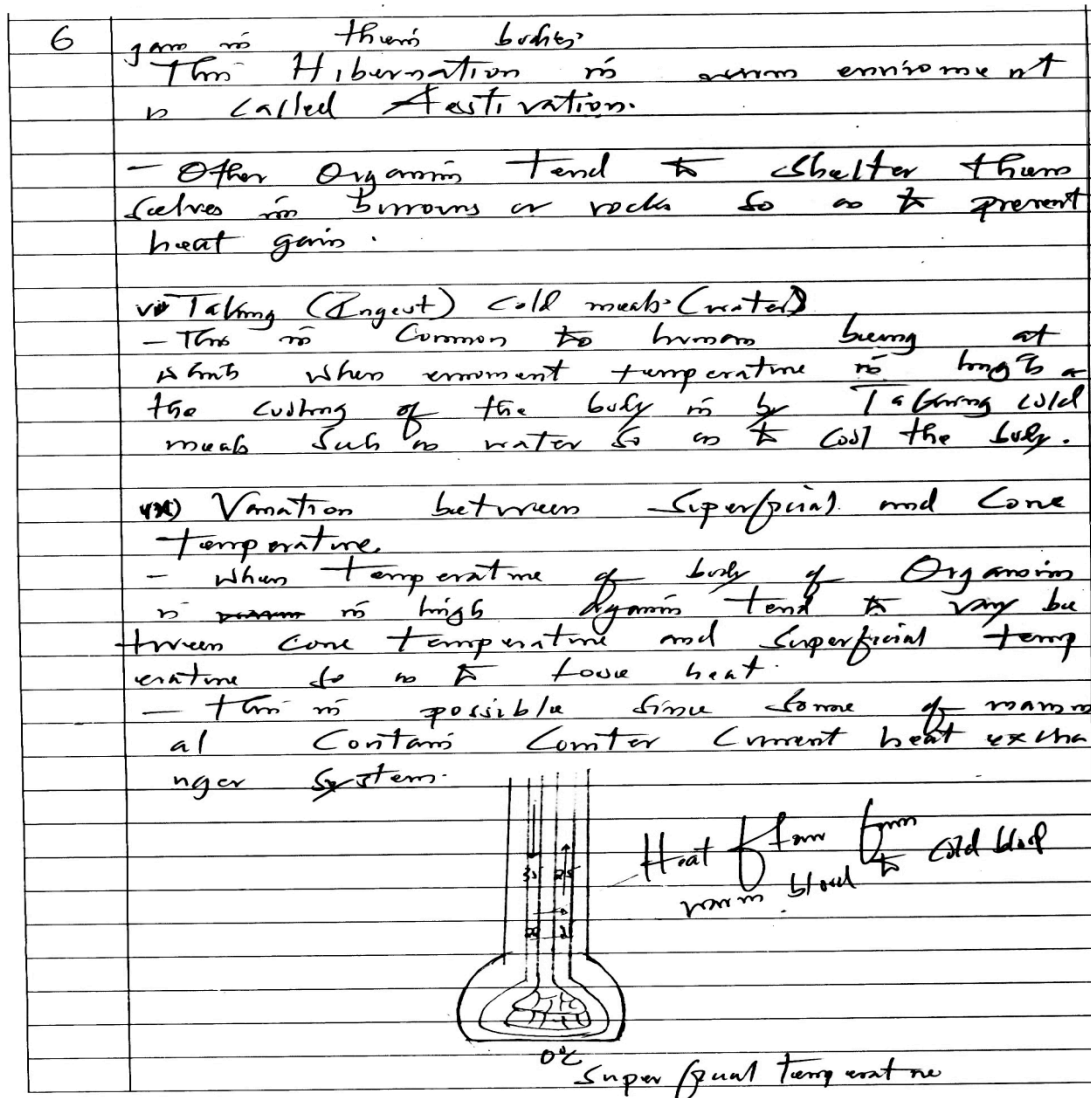 6 gain in their bodies.
This Hibernation in warm enviroment
is called Aestivation.
- Other Organism Tend to Shelter them
selves in burrows or rocks so as to prevent
heat gain.
Taking (Ingest) cold meals (water)
- This is Common to human being at
when enviroment temperature is high
the cooling of the body is by Taking cold
meals such as water so as to cool the body.
Variation between Superficial and Core
Temperature.
- When Temperature of body of Organism
is is high Organism tend to vary be
tween Core temperature and Superficial temp
erature so as to loose heat.
- this is possible since some of mamm
al Contain Counter Current heat excha
nger System.
Heat flow from
warm blood to cold blood
35 25
0°C
Superficial Temperature